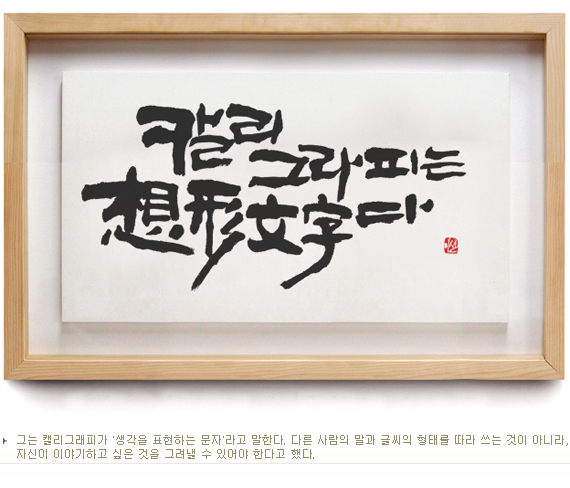 캘리
그라피는
想形文字다
그는 캘리그래피가 '생각을 표현하는 문자'라고 말한다. 다른 사람의 말과 글씨의 형태를 따라 쓰는 것이 아니라,
자신이 이야기하고 싶은 것을 그려낼 수 있어야 한다고 했다.